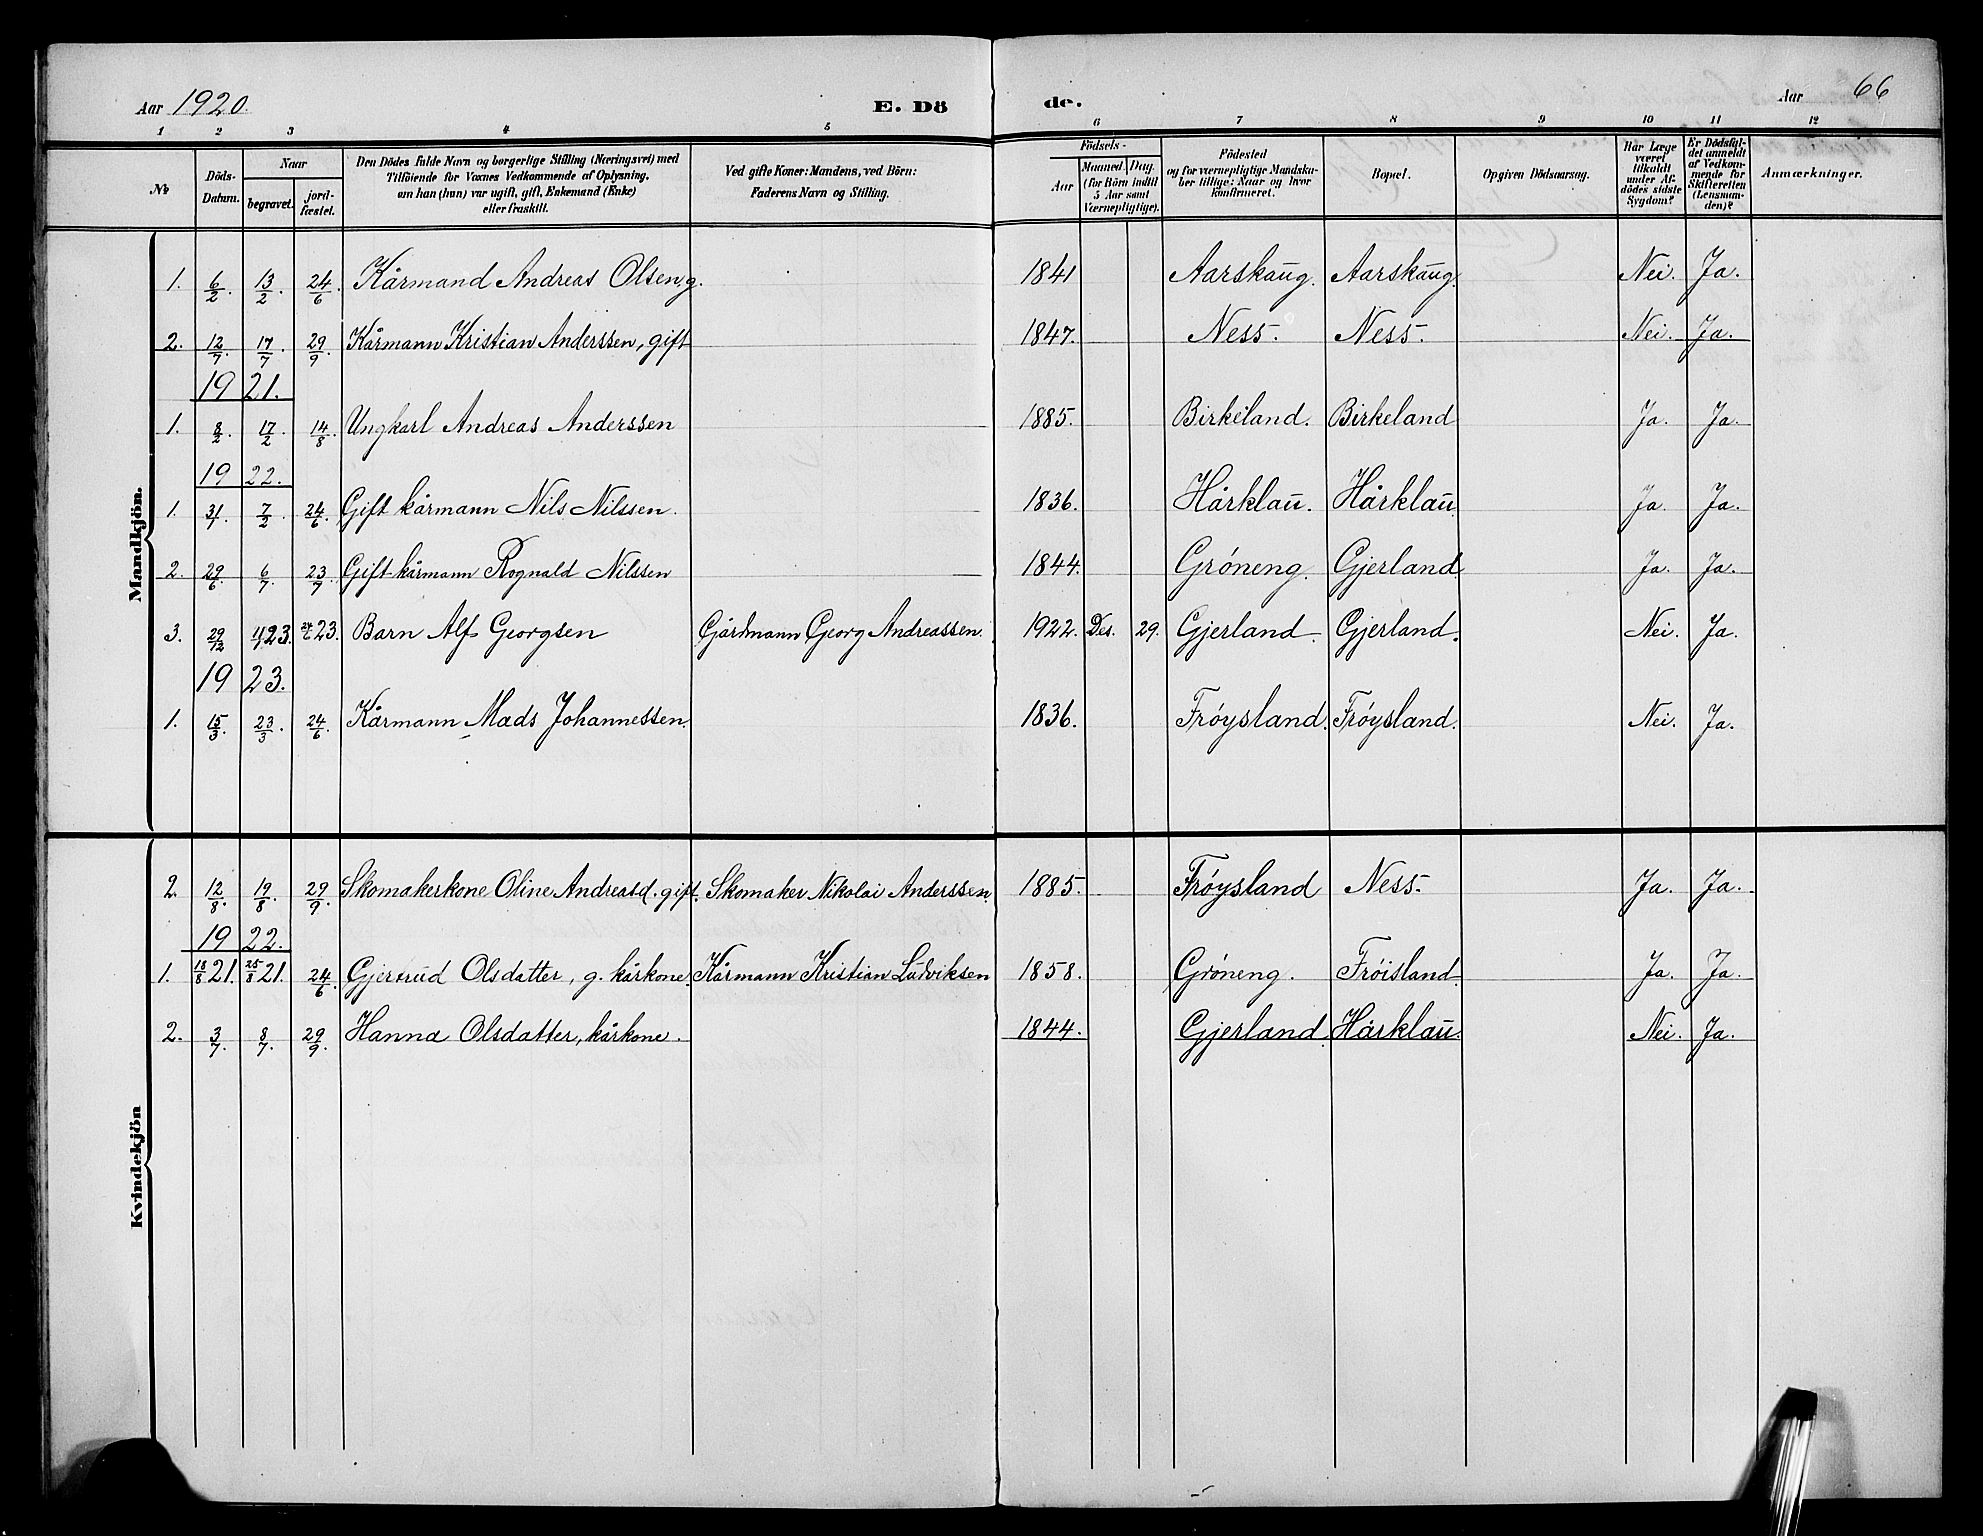 Aar 1920. E. Dö de. Aar 66
1 2 3 4 5 6 7 8 9 10 11 12
No Döds-Datum. Naar begravet. jord-fæstet. Den Dödes fulde Navn og borgerlige Stilling (Næringsvei) med Tilföiende for Voxnes Vedkommende af Oplysning, om han (hun) var ugift, gift, Enkemand (Enke) eller fraskilt. Ved gifte Koner: Mandens, ved Börn: Faderens Navn og Stilling. Födsels- Aar Maaned. Dag. (for Börn indtil 5 Aar samt Værnepligtige). Födested og for værnepligtige Mandskaber tillige: Naar og hvor konfirmeret. Bopæl. Opgiven Dödsaarsag. Har Læge været tilkaldt under Afdödes sidste Sygdom? Er Dödsfaldet anmeldt af Vedkommende for Skifteretten (Lensmanden)? Anmærkninger.
Mandkjön.
1. 6/2. 13/2. 24/6. Kårmand Andreas Olsen, g. 1841 Aarskaug. Aarskaug. Nei. Ja.
2. 12/7. 17/7. 29/9. Kårmann Kristian Anderssen, gift 1847. Ness. Ness. Nei. Ja.
19 21.
1. 8/2. 17/2. 14/8. Ungkarl Andreas Anderssen 1885. Birkeland. Birkeland Ja. Ja.
19 22.
1. 31/1. 7/2. 24/6. Gift kårmann Nils Nilssen. 1836. Hårklau. Hårklau. Ja. Ja.
2. 29/6. 6/7. 23/7. Gift kårmann Rognald Nilssen 1844. Grøneng. Gjerland. Ja. Ja.
3. 29/12 4/1 23. 24/6 23. Barn Alf Georgsen Gårdmann Georg Andreassen. 1922. Des. 29. Gjerland. Gjerland. Nei. Ja.
19 23.
1. 15/3. 23/3. 24/6. Kårmann Mads Johannessen. 1836. Frøysland. Frøysland. Nei. Ja.
Kvindekjön
2. 12/8. 19/8. 29/9. Skomakerkone Oline Andreasd. gift. Skomaker Nikolai Anderssen. 1885. Frøysland Ness. Ja. Ja.
19 22.
1. 18/8 21. 25/8 21. 24/6. Gjertrud Olsdatter, g. kårkone. Kårmann Kristian Ludviksen 1858. Grøneng. Frøisland. Ja. Ja.
2. 3/7. 8/7. 29/9. Hanna Olsdatter, kårkone. 1844. Gjerland. Hårklau. Nei. Ja.